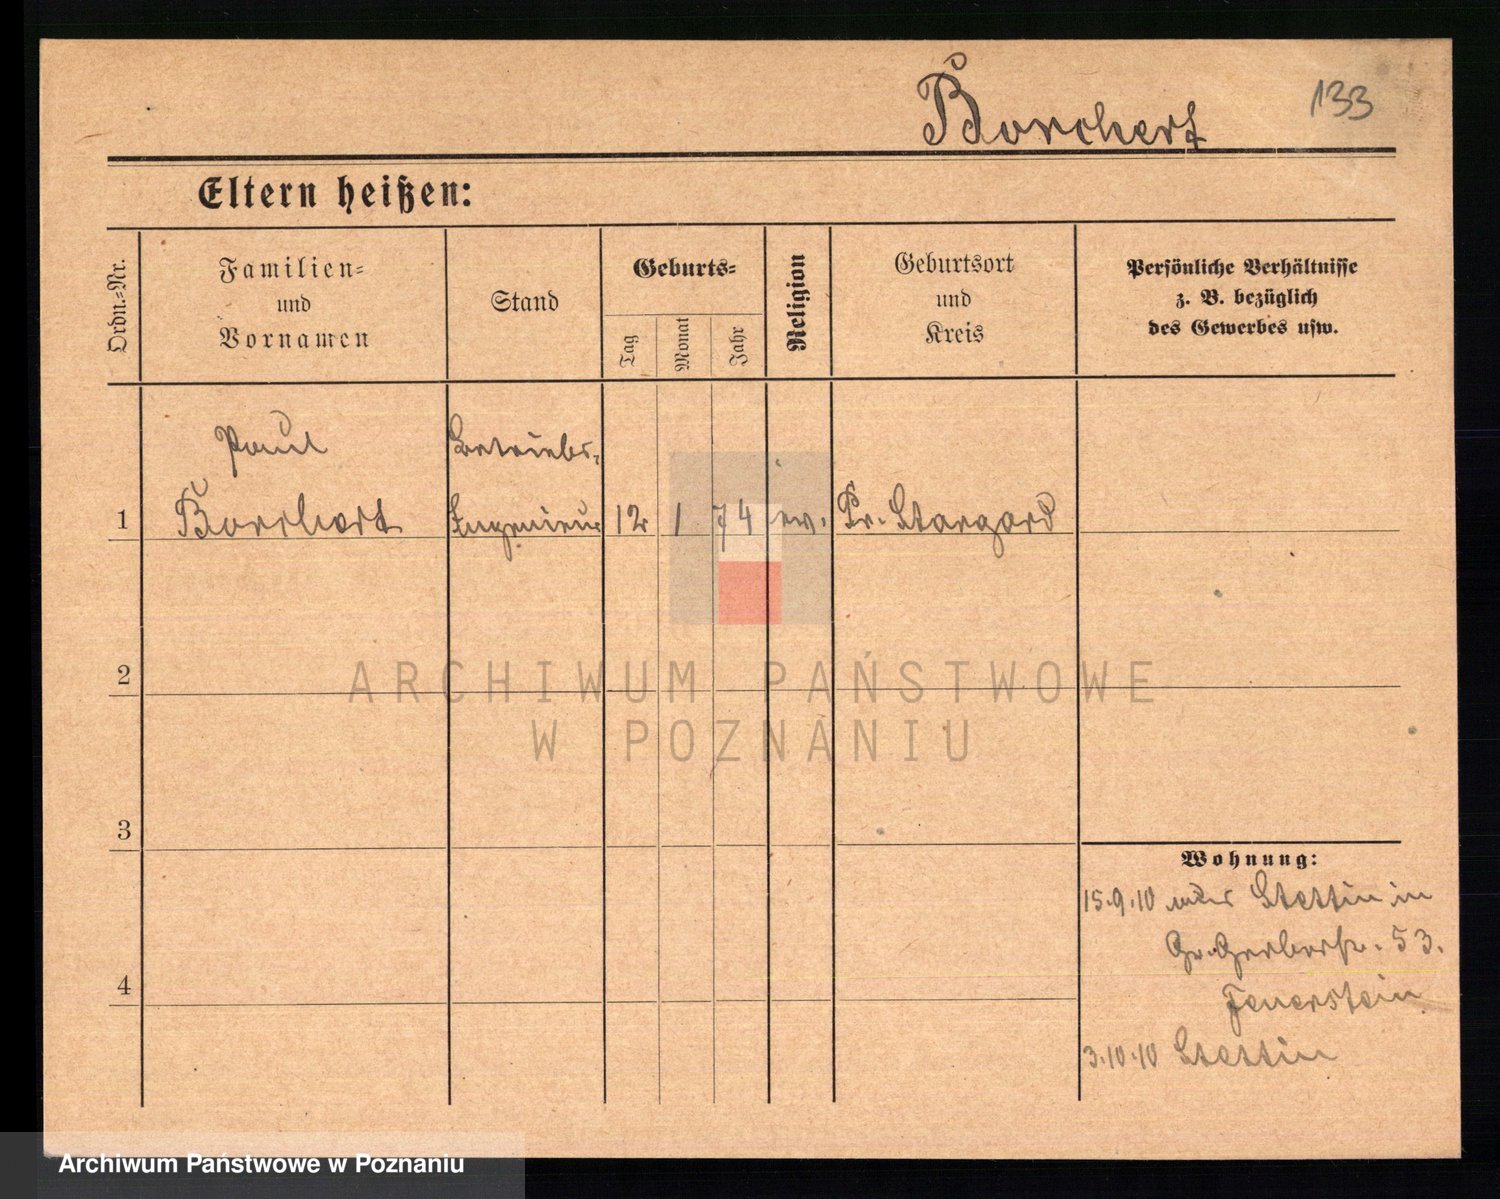 Borchert
133
Eltern heißen:
Ordn.-Nr.
Familien-
und
Vornamen
Stand
Geburts-
Tag
Monat
Jahr
Religion
Geburtsort
und
Kreis
Persönliche Verhältnisse
z. B. bezüglich
des Gewerbes usw.
Paul
Betriebs-
1 Borchert Ingenieur 12 1 74 ev. Pr. Stargard
2
3
4
Wohnung:
15.9.10 Stettin in
Gr. Gerberstr. 53.
Feuerstein
3.10.10 Stettin
ARCHIWUM PAŃSTWOWE
W POZNANIU
Archiwum Państwowe w Poznaniu